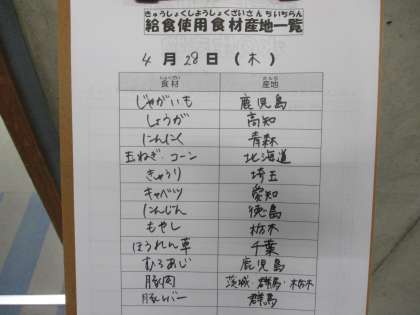 きゅうしょくしようしょくざいさんちいちらん
給食使用食材産地一覧
4月28日(木)
しょくざい さんち
食材 産地
じゃがいも 鹿児島
しょうが 高知
にんにく 青森
玉ねぎ・コーン 北海道
きゅうり 埼玉
キャベツ 愛知
にんじん 徳島
もやし 栃木
ほうれん草 千葉
むろあじ 鹿児島
豚肉 茨城・群馬・栃木
豚レバー 群馬